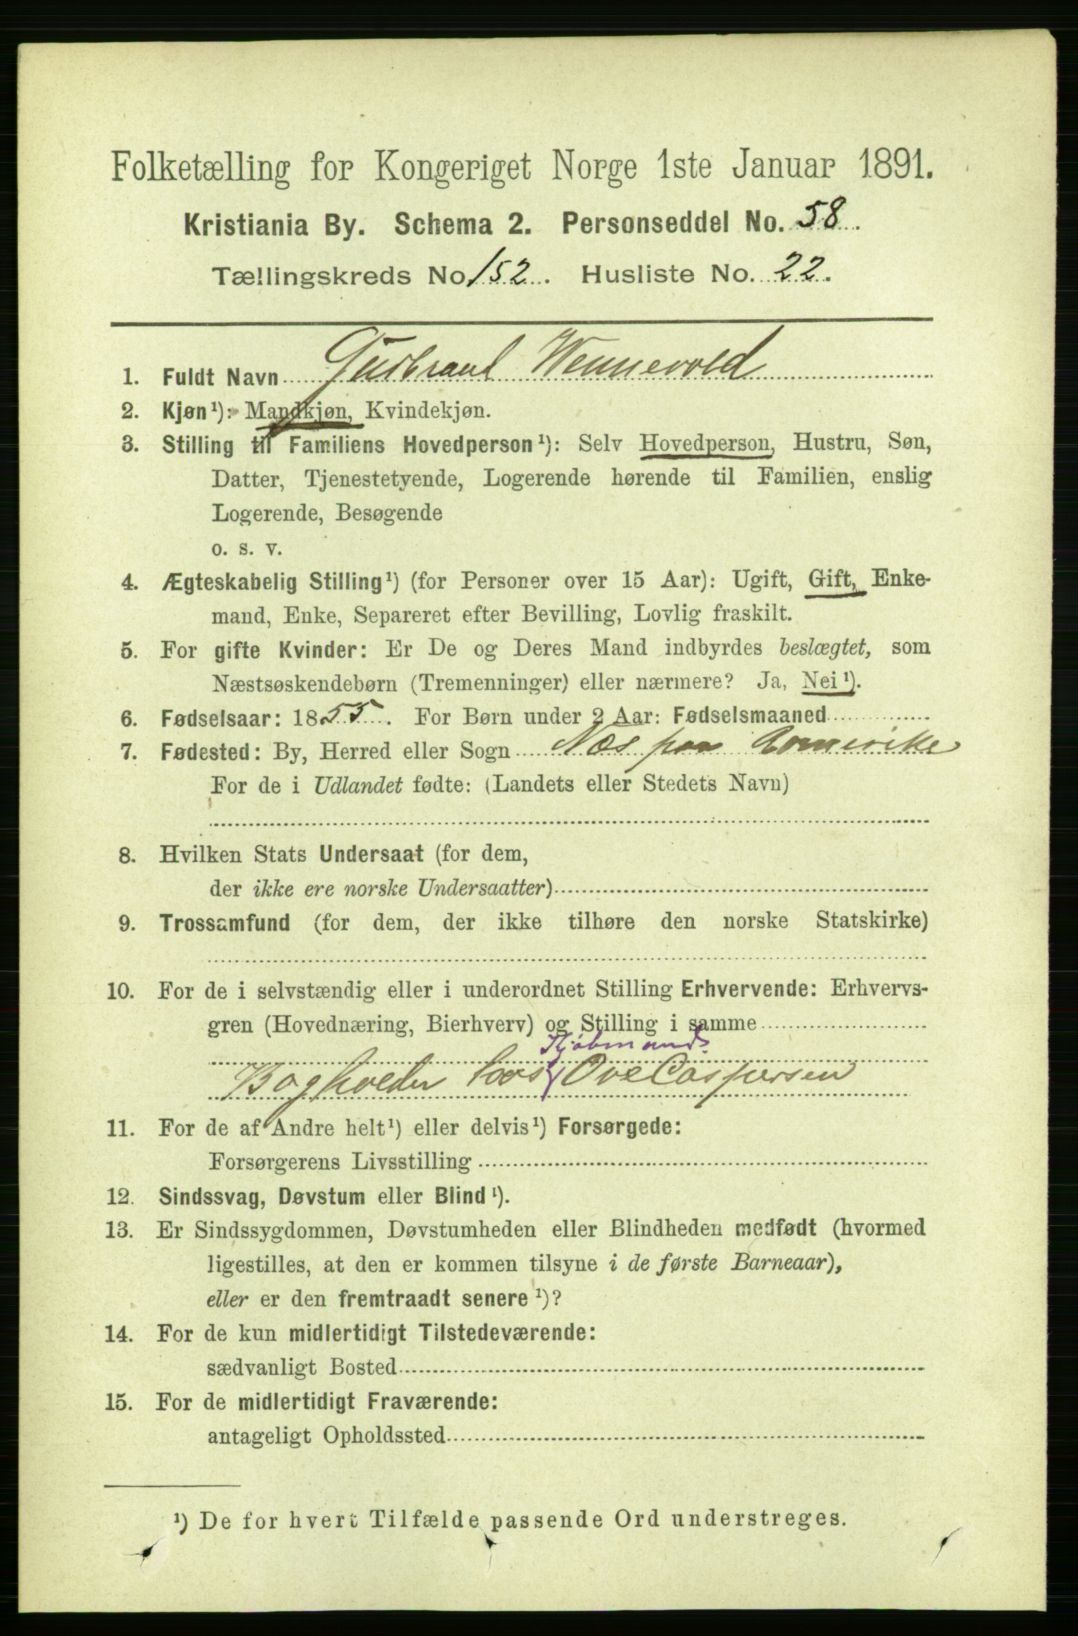 Folketælling for Kongeriget Norge 1ste Januar 1891.
Kristiania By. Schema 2. Personseddel No. 58.
Tællingskreds No. 152. Husliste No. 22.
1. Fuldt Navn Gudbrand Wennevold
2. Kjøn¹): Mandkjøn, Kvindekjøn.
3. Stilling til Familiens Hovedperson¹): Selv Hovedperson, Hustru, Søn,
Datter, Tjenestetyende, Logerende hørende til Familien, enslig
Logerende, Besøgende
o. s. v.
4. Ægteskabelig Stilling¹) (for Personer over 15 Aar): Ugift, Gift, Enke-
mand, Enke, Separeret efter Bevilling, Lovlig fraskilt.
5. For gifte Kvinder: Er De og Deres Mand indbyrdes beslægtet, som
Næstsøskendebørn (Tremenninger) eller nærmere? Ja, Nei¹).
6. Fødselsaar: 1855. For Børn under 2 Aar: Fødselsmaaned
7. Fødested: By, Herred eller Sogn Næs paa Romerike
For de i Udlandet fødte: (Landets eller Stedets Navn)
8. Hvilken Stats Undersaat (for dem,
der ikke ere norske Undersaatter)
9. Trossamfund (for dem, der ikke tilhøre den norske Statskirke)
10. For de i selvstændig eller i underordnet Stilling Erhvervende: Erhvervs-
gren (Hovednæring, Bierhverv) og Stilling i samme
Kjøbmand
Bogholder hos Ove Caspersen
11. For de af Andre helt¹) eller delvis¹) Forsørgede:
Forsørgerens Livsstilling
12. Sindssvag, Døvstum eller Blind¹).
13. Er Sindssygdommen, Døvstumheden eller Blindheden medfødt (hvormed
ligestilles, at den er kommen tilsyne i de første Barneaar),
eller er den fremtraadt senere¹)?
14. For de kun midlertidigt Tilstedeværende:
sædvanligt Bosted
15. For de midlertidigt Fraværende:
antageligt Opholdssted
¹) De for hvert Tilfælde passende Ord understreges.